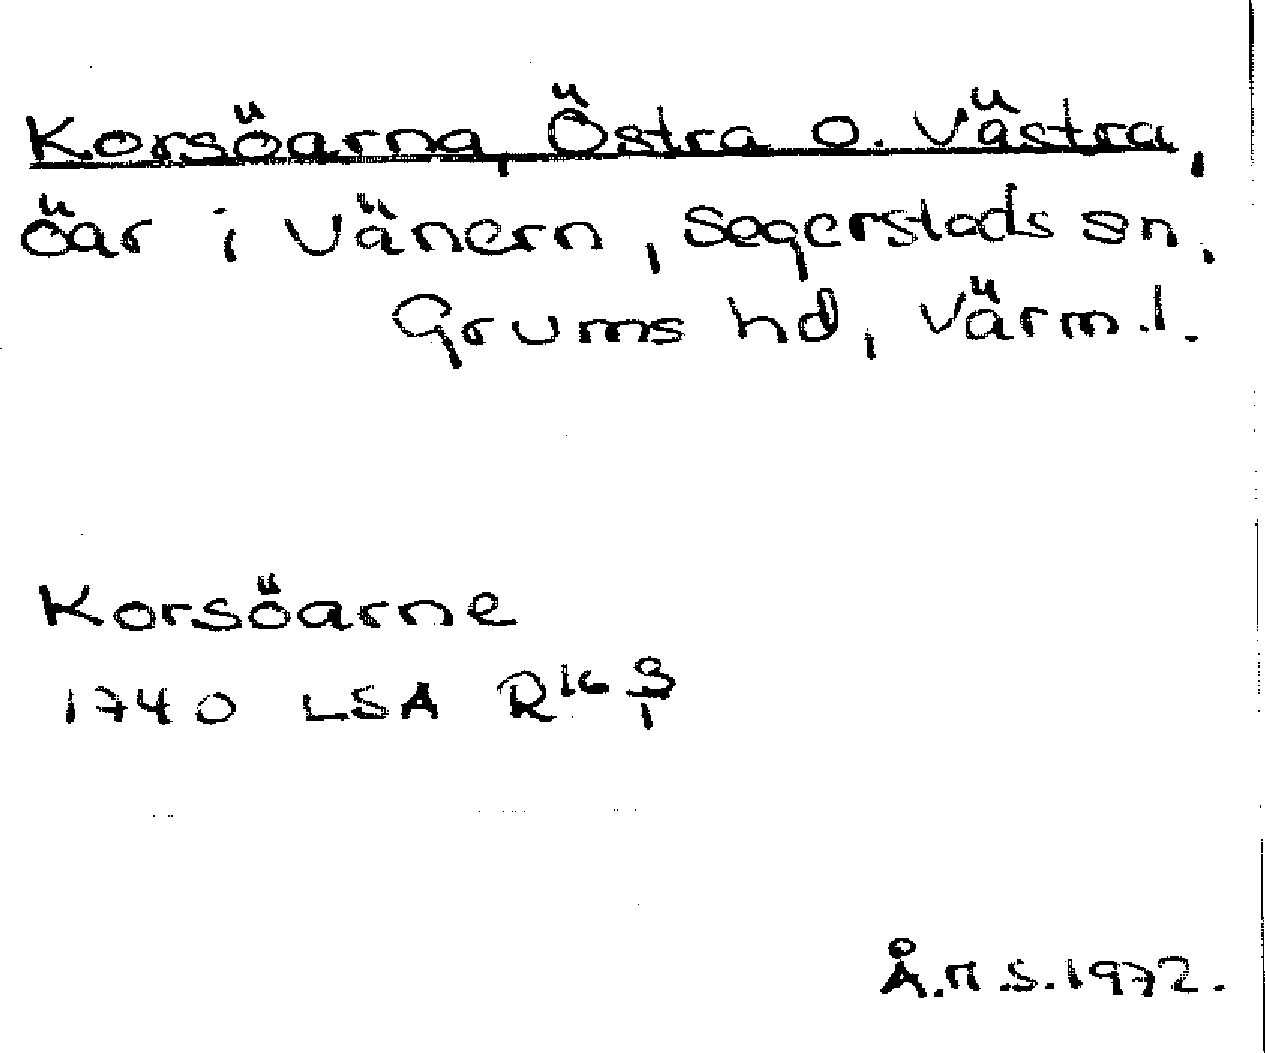 Korsöarna, Östra o. Västra,
öar i Vänern, Segerstads sn,
Grums hd, Värml.
Korsöarne
1740 LSA R16 8/1
Å.H.S. 1972.